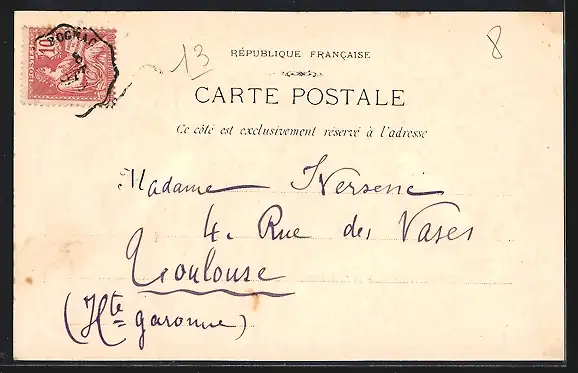 10
POSTES
13
8
RÉPUBLIQUE FRANÇAISE
CARTE POSTALE
Ce côté est exclusivement réservé à l'adresse
Madame
4. Rue des Vases
Toulouse
(Hte garonne)